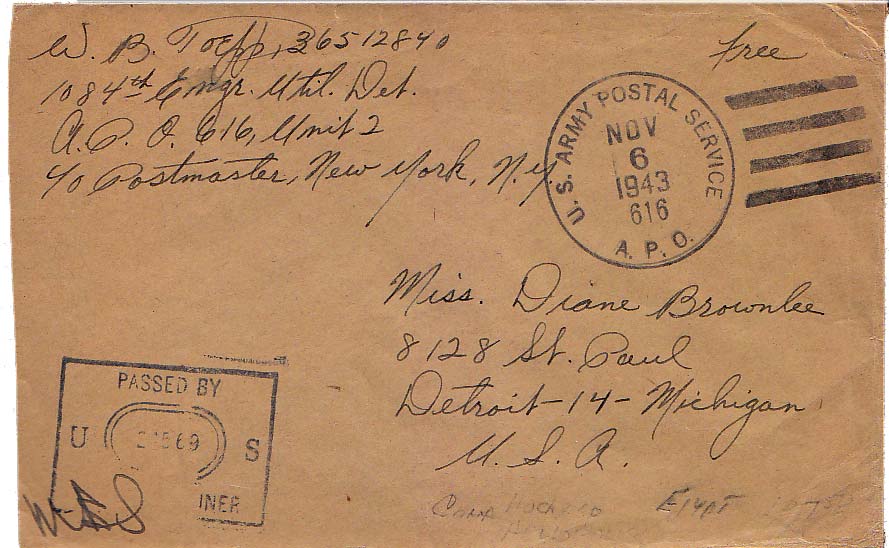 W. B. Toepp, 36512840
1084th Engr. Util. Det.
A. P. O. 616, Unit 2
c/o Postmaster, New York, N.Y.
Free
U. S. ARMY POSTAL SERVICE
NOV
6
1943
616
A. P. O.
Miss. Diane Brownlee
8128 St. Paul
Detroit-14-Michigan
U. S. A.
PASSED BY
U S
INER
Camp